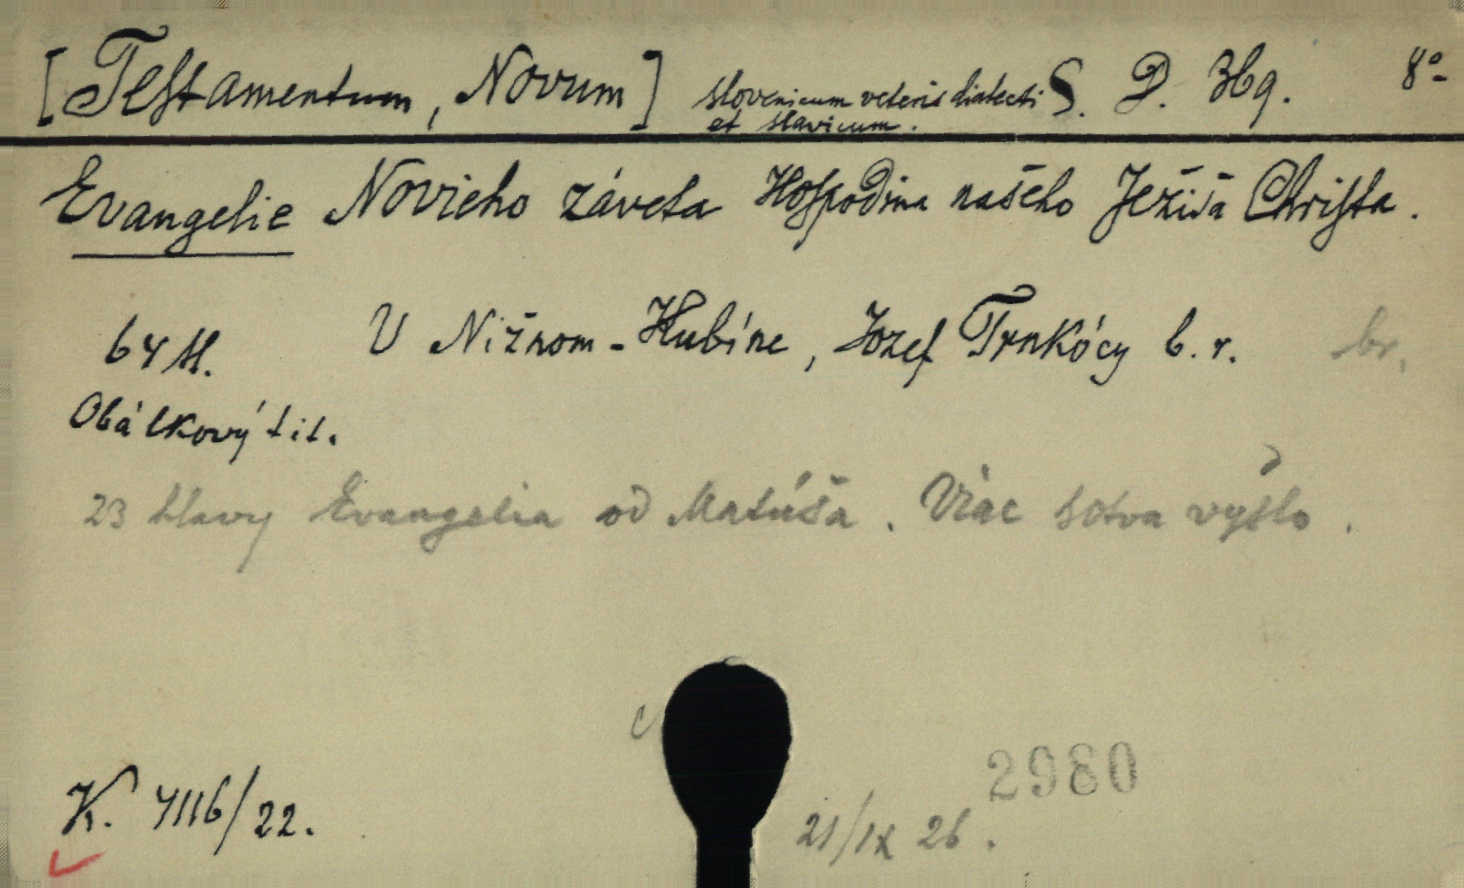 [Testamentum, Novum] slovenicum veteris dialecti S. D. 369. 8°-
et slavicum.
Evangelie Novieho záveta Hospodina našeho Ježiša Christa.
64 H. U Nižnom-Kubíne, Jozef Trnkócy b. r. br.
Obálkový tit.
23 hlavy Evangelia od Matúša. Viac sotva vyšlo.
2980
K. 4116/22.
21/IX 26.